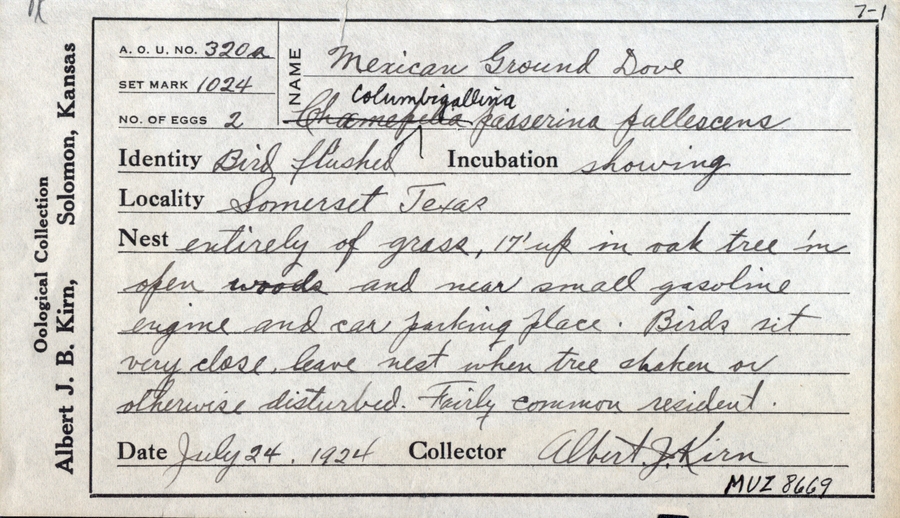 7-1
Oological Collection
Albert J. B. Kirn, Solomon, Kansas
A. O. U. NO. 320a
SET MARK 1024
NO. OF EGGS 2
NAME Mexican Ground Dove
Columbigallina
Chamepelia passerina pallescens
Identity Bird flushed Incubation showing
Locality Somerset Texas
Nest entirely of grass, 17' up in oak tree in
open woods and near small gasoline
engine and car parking place. Birds sit
very close, leave nest when tree shaken or
otherwise disturbed. Fairly common resident.
Date July 24, 1924 Collector Albert J. Kirn
MVZ 8669